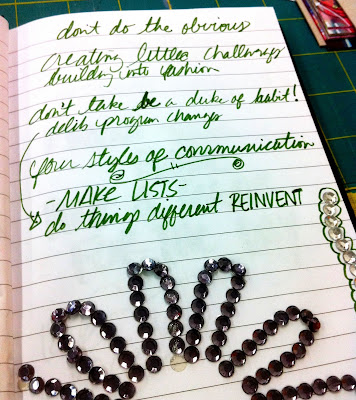 don't do the obvious
creating little challenges
building into fashion
don't take be a duke of habit!
delib program changes
styles of communication
-MAKE LISTS-
do things different REINVENT